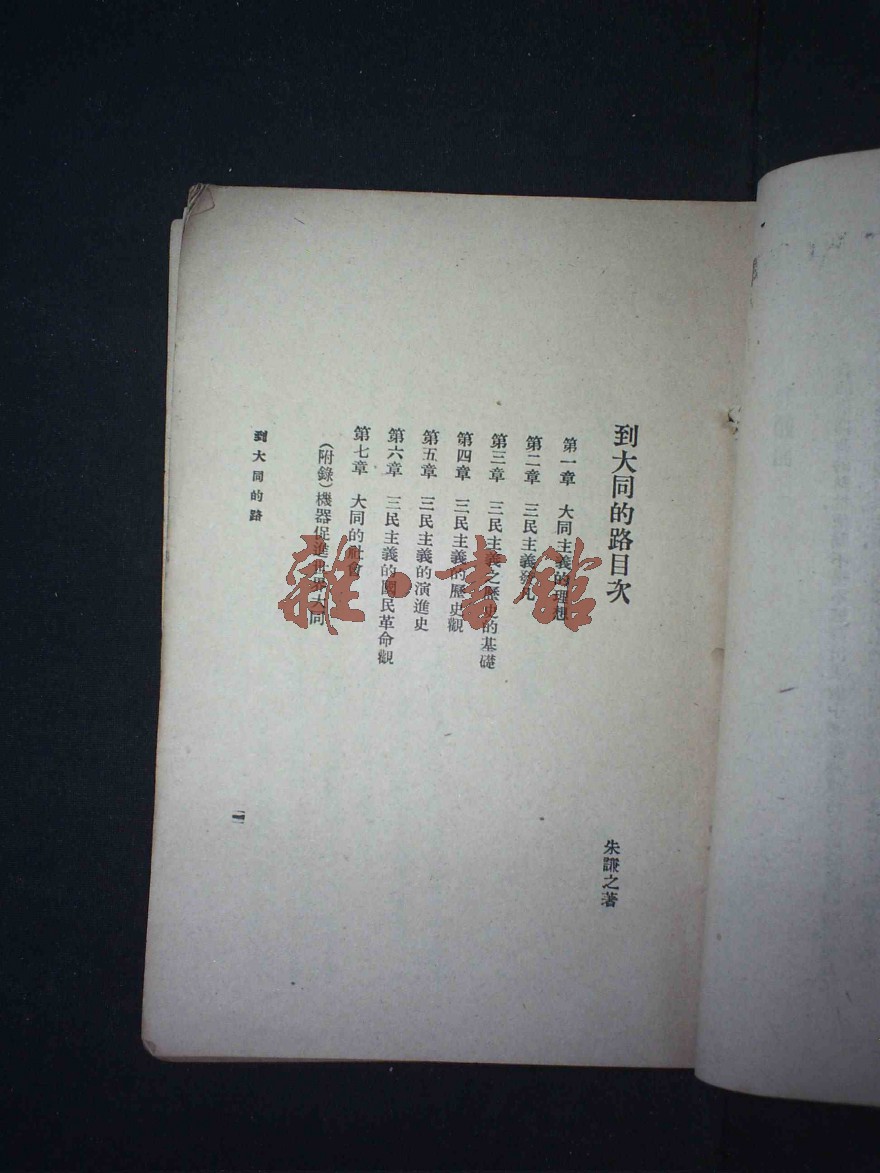 到大同的路目次
朱謙之著
第一章　大同主義的理想
第二章　三民主義發凡
第三章　三民主義之歷史的基礎
第四章　三民主義的歷史觀
第五章　三民主義的演進史
第六章　三民主義的國民革命觀
第七章　大同的社會
(附錄)機器促進世界大同
到大同的路
雜·書館